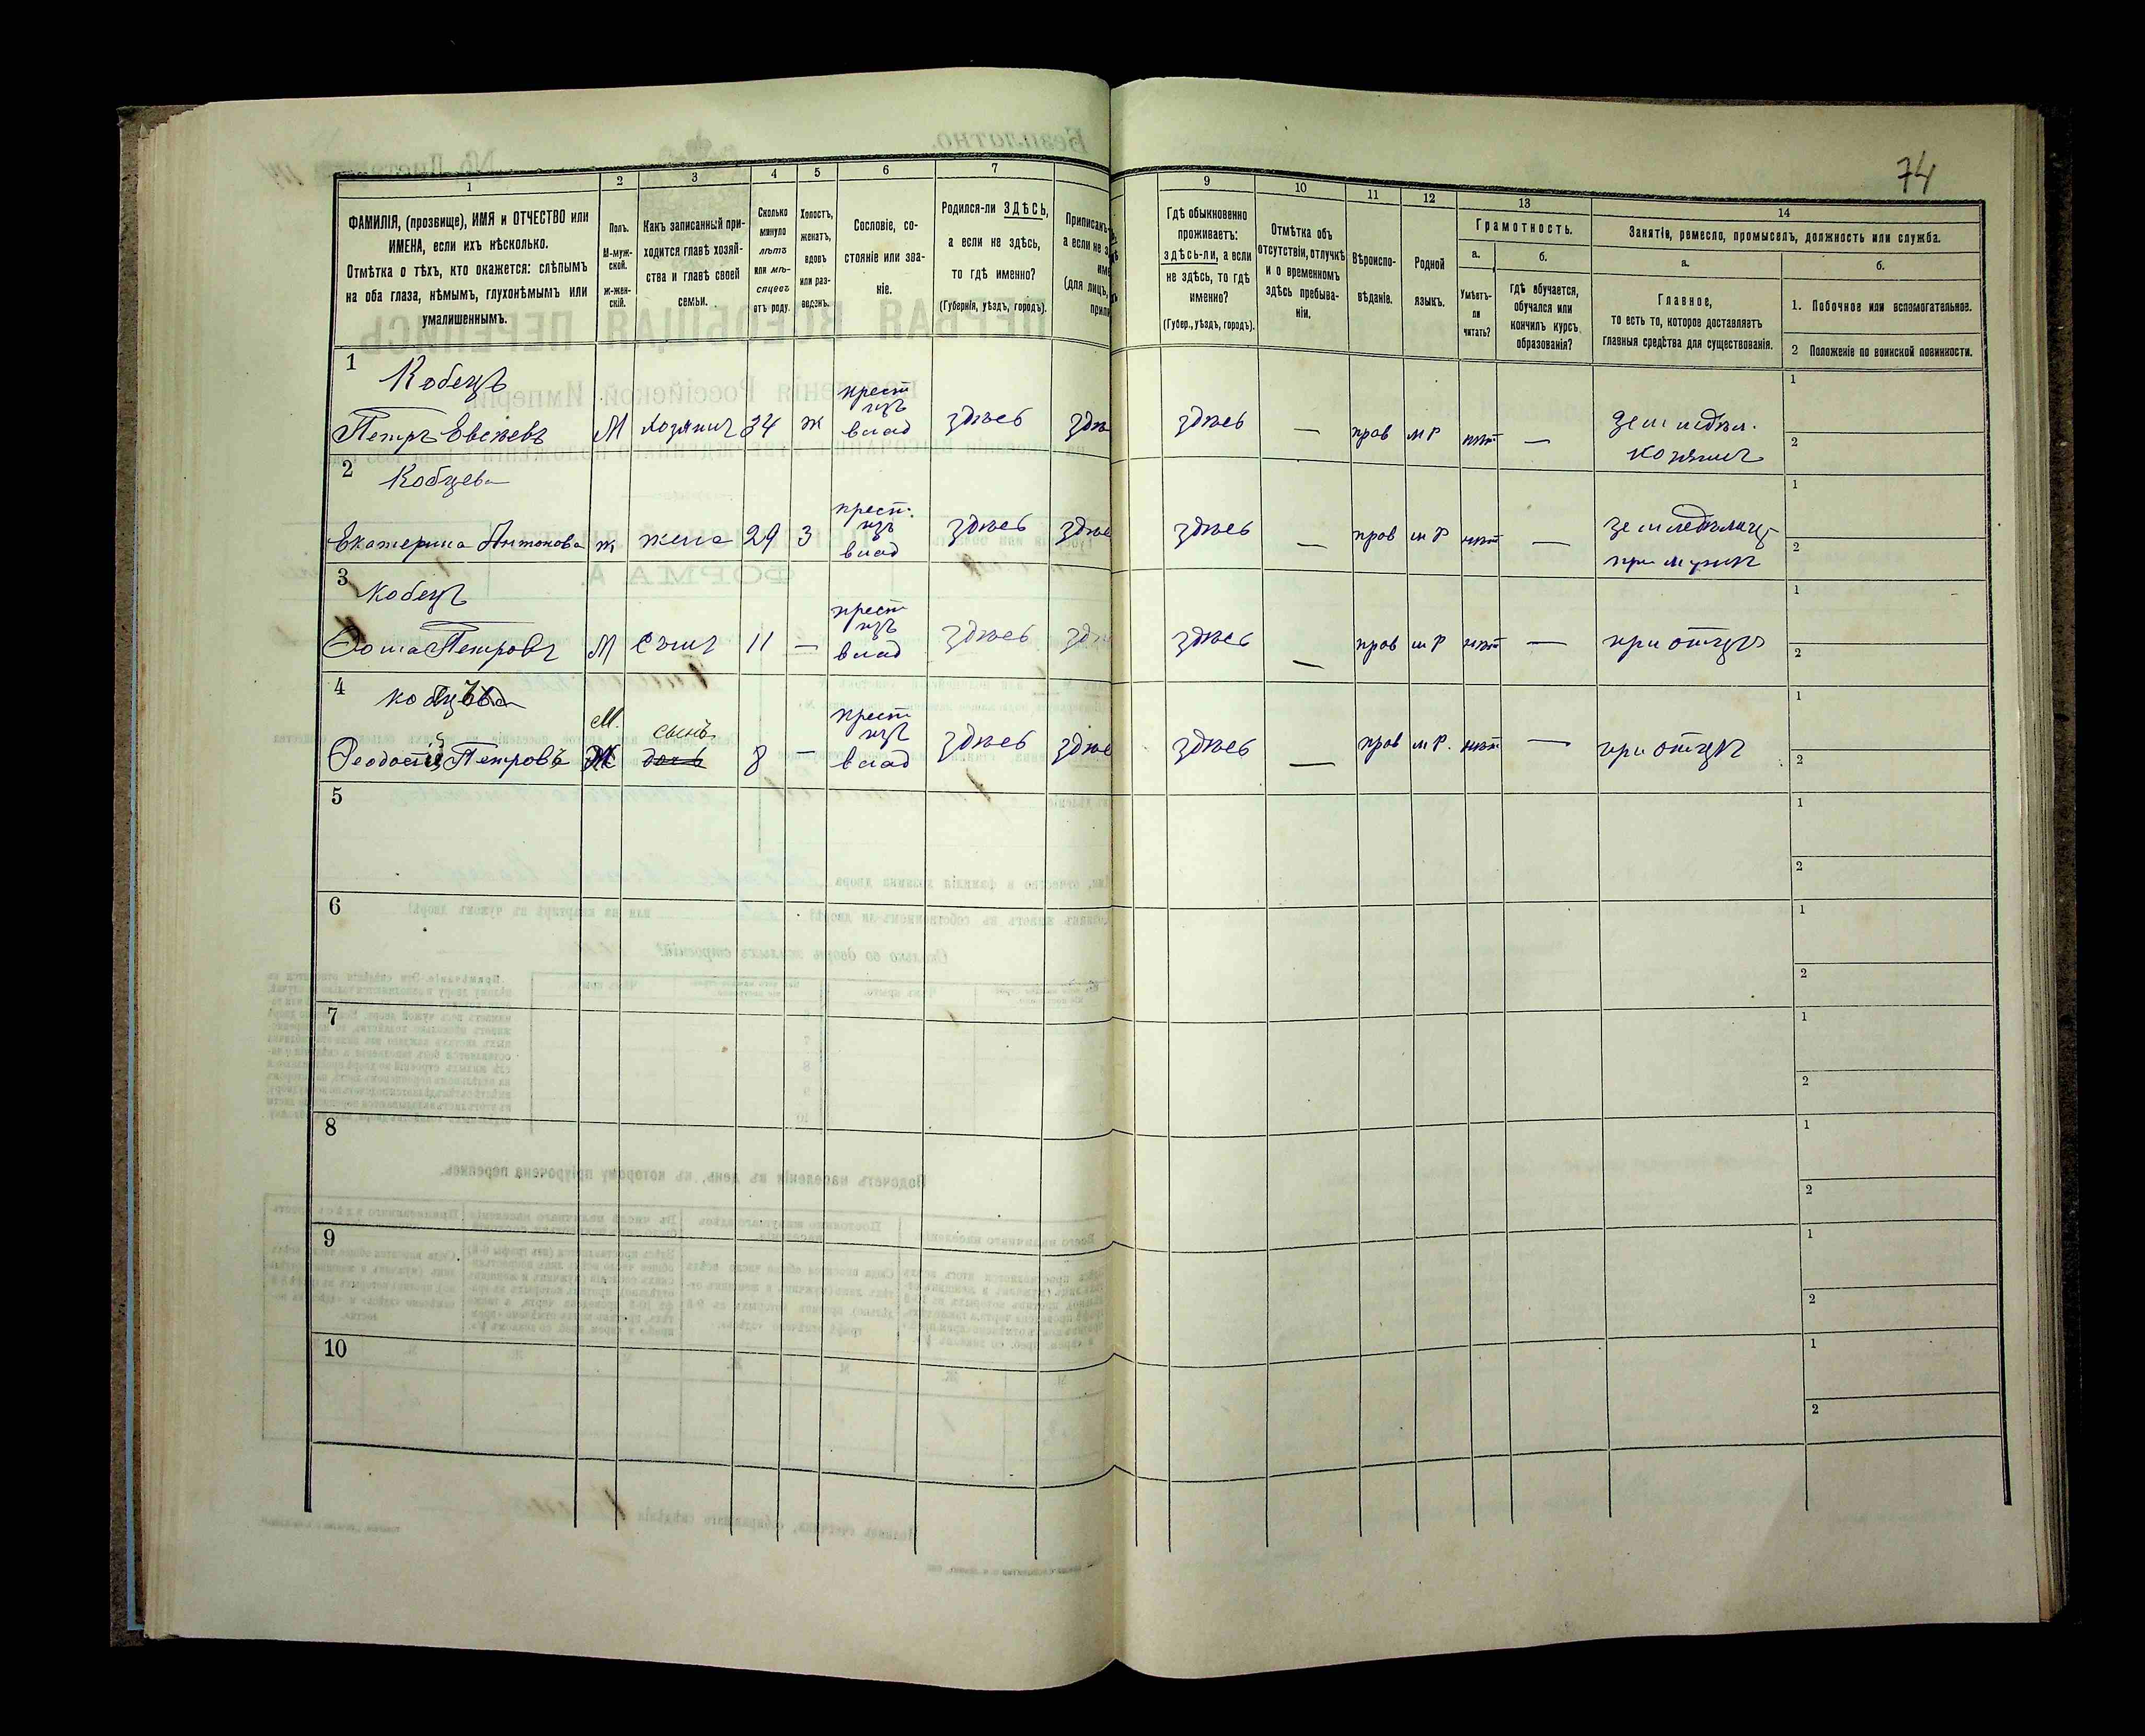 74
1
2
3
4
5
6
7
9
10
11
12
13
14
ФАМИЛІЯ, (прозвище), ИМЯ и ОТЧЕСТВО или
ИМЕНА, если ихъ нѣсколько.
Отмѣтка о тѣхъ, кто окажется: слѣпымъ
на оба глаза, нѣмымъ, глухонѣмымъ или
умалишеннымъ.
Полъ.
М-муж-
ской.
Ж-жен-
скій.
Какъ записанный при-
ходится главѣ хозяй-
ства и главѣ своей
семьи.
Сколько
минуло
лѣтъ
или мѣ-
сяцевъ
отъ роду.
Холостъ,
женатъ,
вдовъ
или раз-
веденъ.
Сословіе, со-
стояніе или зва-
ніе.
Родился-ли ЗДѢСЬ,
а если не здѣсь,
то гдѣ именно?
(Губернія, уѣздъ, городъ).
Приписанъ
а если не з
име
(для лицъ,
припи
Гдѣ обыкновенно
проживаетъ:
здѣсь-ли, а если
не здѣсь, то гдѣ
именно?
(Губер., уѣздъ, городъ).
Отмѣтка объ
отсутствіи, отлучкѣ
и о временномъ
здѣсь пребыва-
ніи.
Вѣроиспо-
вѣданіе.
Родной
языкъ.
Грамотность.
а.
Умѣетъ-
ли
читать?
б.
гдѣ обучается,
обучался или
кончилъ курсъ
образованія?
Занятіе, ремесло, промыселъ, должность или служба.
а.
Главное,
то есть то, которое доставляетъ
главныя средства для существованія.
б.
1. Побочное или вспомогательное.
2 Положеніе по воинской повинности.
1 Кобецъ
Петръ Евсѣевъ М хозяинъ 34 ж крест изъ влад здѣсь здѣ здѣсь — прав мР нѣт — земледѣл. хозяинъ
1
2
2 Кобцева
Екатерина Антонова ж жена 29 З крест. изъ влад здѣсь здѣсь здѣсь — прав мР нѣт — земледѣлица при мужѣ
1
2
3 Кобецъ
Фома Петровъ М сынъ 11 — крест изъ влад здѣсь здѣ здѣсь — прав мР нѣт — при отцѣ
1
2
4
Феодосій Петровъ М. сынъ 8 — крест изъ влад здѣсь здѣс здѣсь — прав мР. нѣт — при отцѣ
1
2
5
1
2
6
1
2
7
1
2
8
1
2
9
1
2
10
1
2